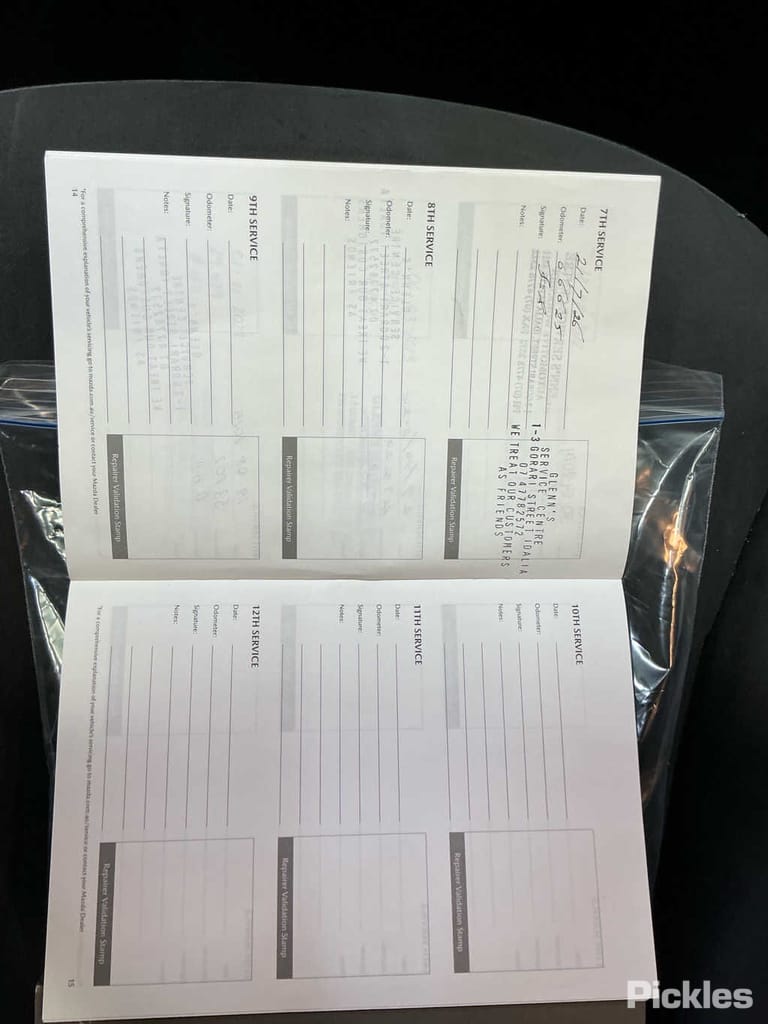 7TH SERVICE
Date: 21/7/26
Odometer: 66625
Signature:
Notes:
GLENN'S
SERVICE CENTRE
1-3 GORARI STREET IDALIA
07 47782572
WE TREAT OUR CUSTOMERS
AS FRIENDS
Repairer Validation Stamp
8TH SERVICE
Date:
Odometer:
Signature:
Notes:
Repairer Validation Stamp
9TH SERVICE
Date:
Odometer:
Signature:
Notes:
Repairer Validation Stamp
*For a comprehensive explanation of your vehicle's servicing go to mazda.com.au/service or contact your Mazda Dealer
14
10TH SERVICE
Date:
Odometer:
Signature:
Notes:
Repairer Validation Stamp
11TH SERVICE
Date:
Odometer:
Signature:
Notes:
Repairer Validation Stamp
12TH SERVICE
Date:
Odometer:
Signature:
Notes:
Repairer Validation Stamp
*For a comprehensive explanation of your vehicle's servicing go to mazda.com.au/service or contact your Mazda Dealer
15
Pickles